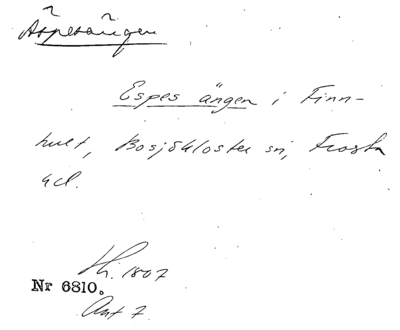 Äspesängen
Espes ängen i Finn-
hult, Bosjökloster sn, Frosta
hd.
Lh. 1807
Nr 6810.
Akt 7